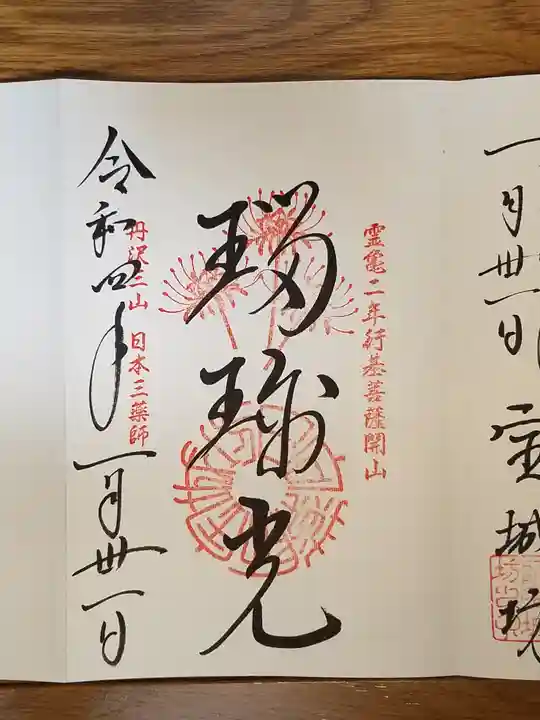 一月卅一日 宝城坊
霊亀二年行基菩薩開山
瑠璃光
丹沢三山 日本三薬師
令和四年一月卅一日